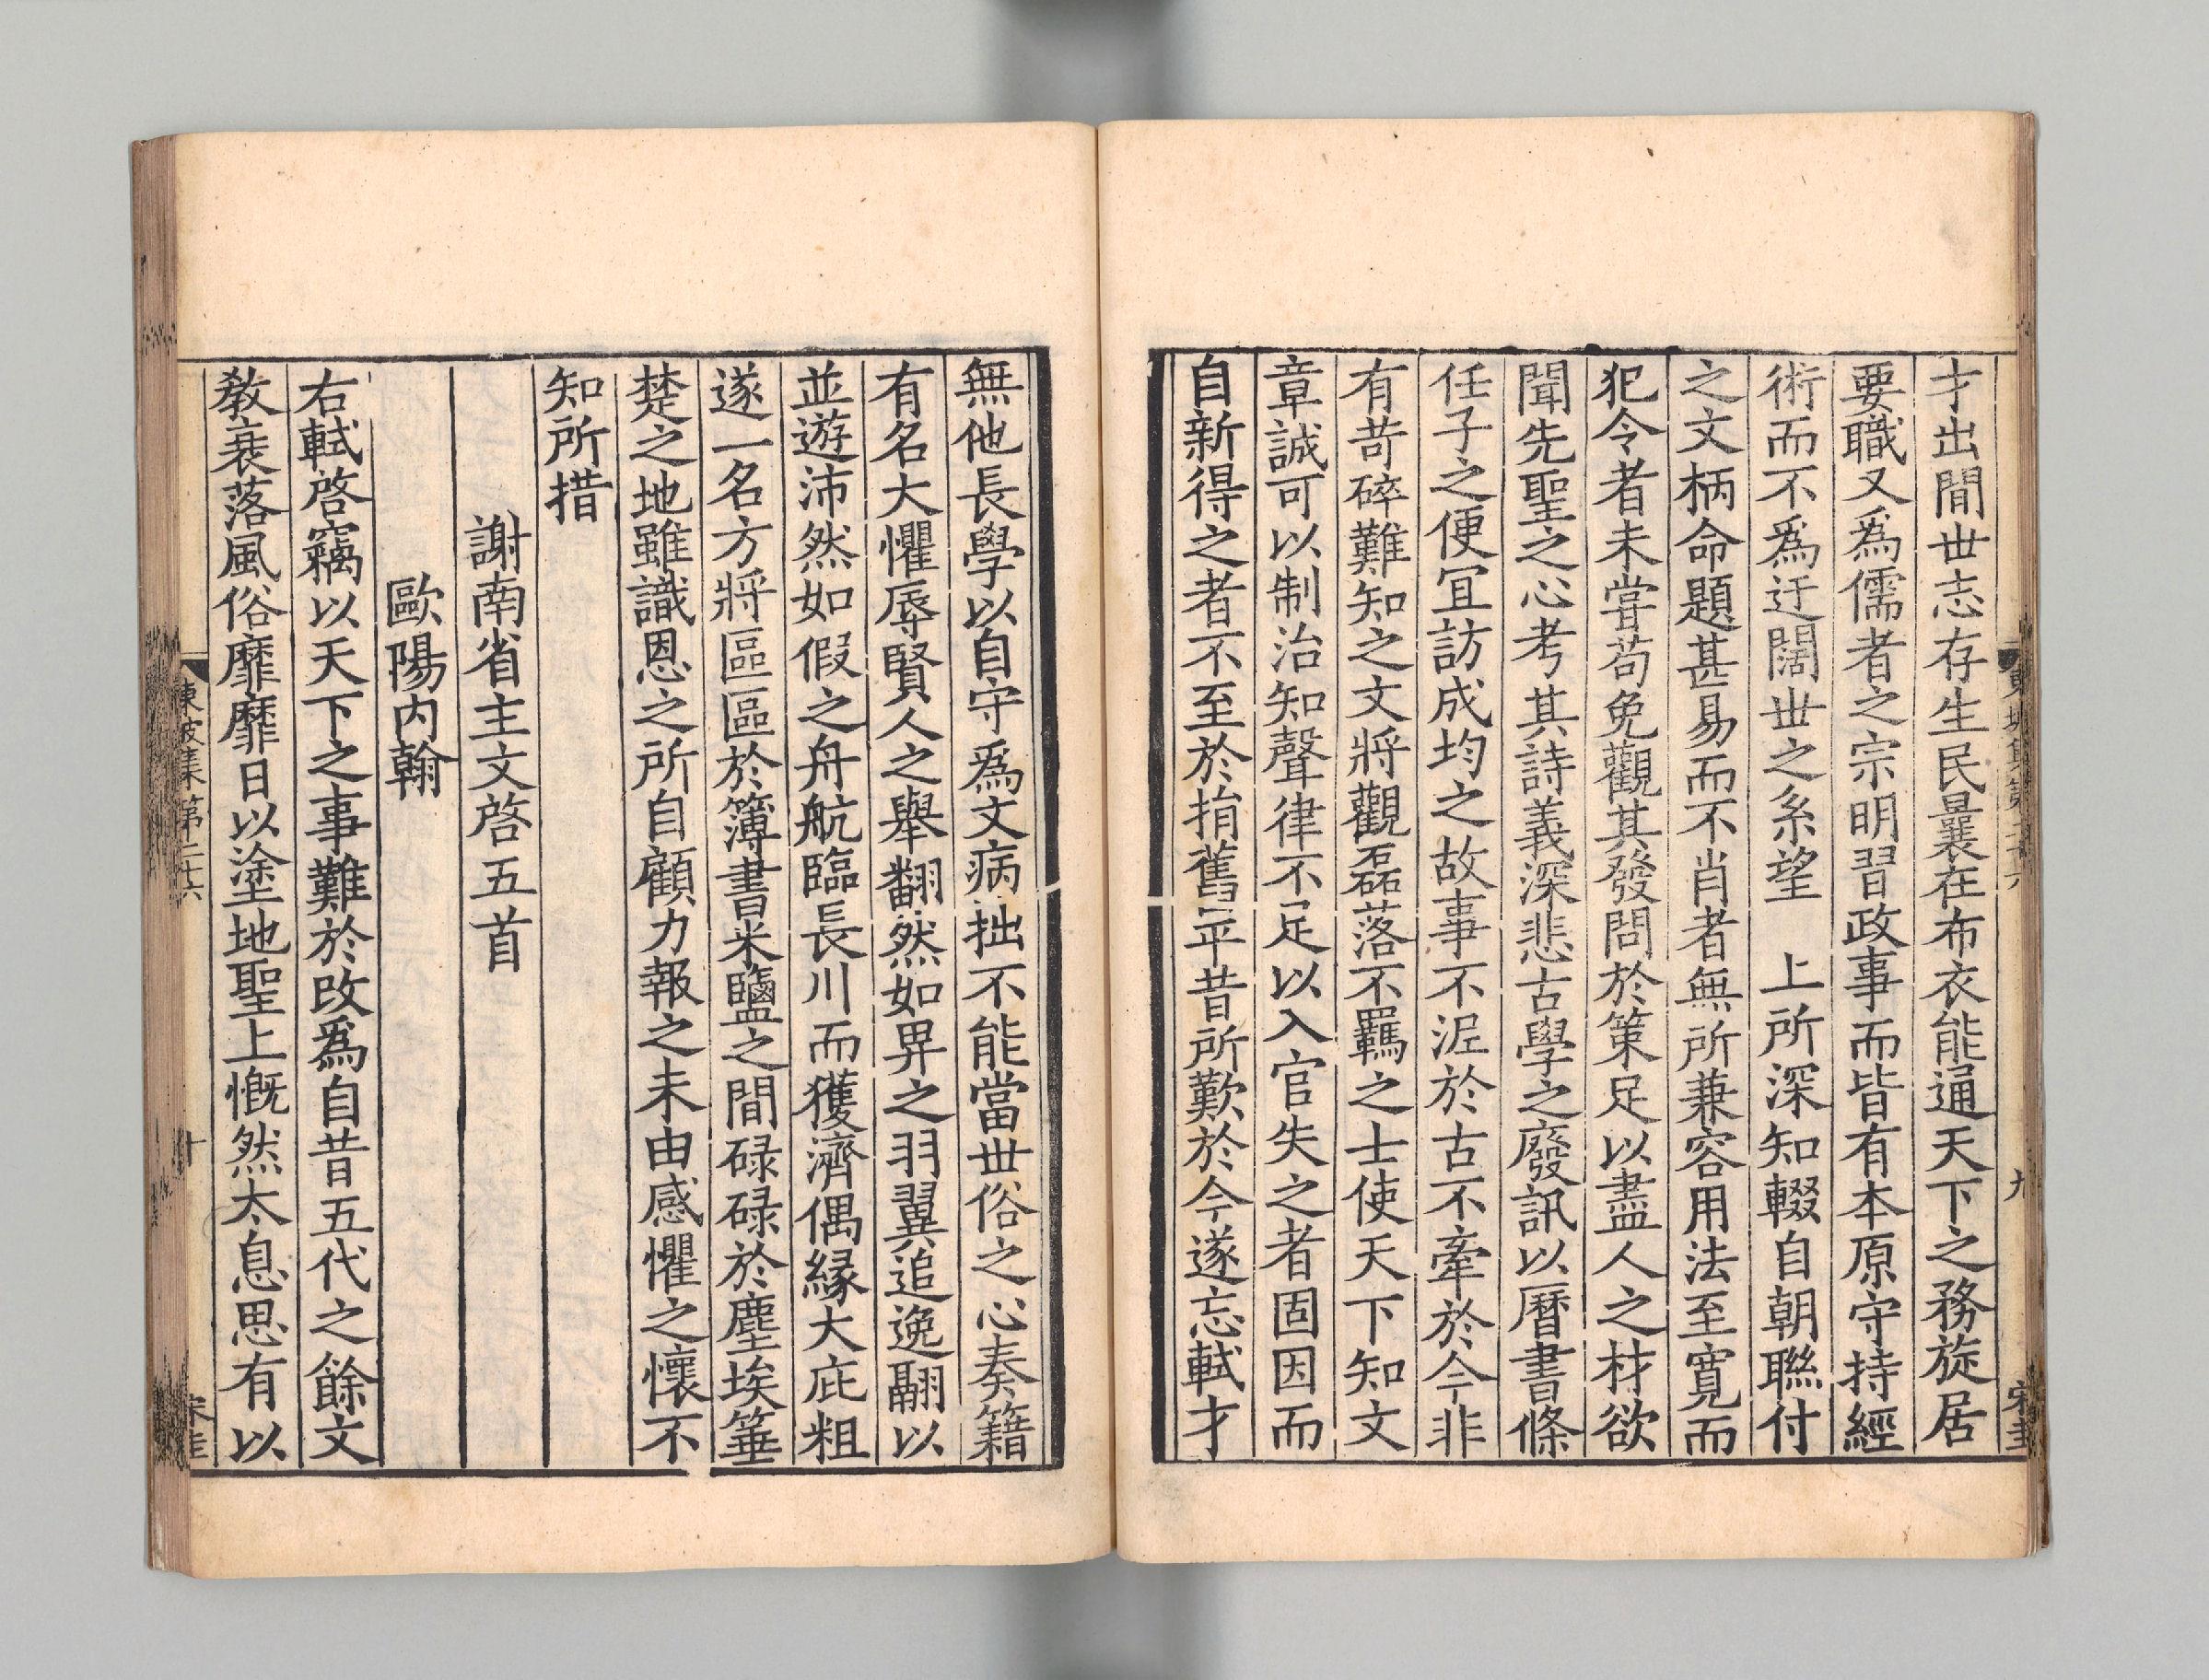 才出間世志存生民曩在布衣能通天下之務旋居
要職又爲儒者之宗明習政事而皆有本原守持經
術而不爲迂闊世之系望 上所深知輟自朝聮付
之文柄命題甚易而不肖者無所兼容用法至寛而
犯令者未甞苟免觀其發問於策足以盡人之材欲
聞先聖之心考其詩義深悲古學之廢訊以曆書條
任子之便冝訪成均之故事不泥於古不牽於今非
有苛碎難知之文將觀磊落不羈之士使天下知文
章誠可以制治知聲律不足以入官失之者固因而
自新得之者不至於捐舊平昔所歎於今遂忘軾才
無他長學以自守爲文病拙不能當世俗之心奏籍
有名大懼辱賢人之舉翻然如畀之羽翼追逸翮以
並遊沛然如假之舟航臨長川而獲濟偶縁大庇粗
遂一名方將區區於簿書米鹽之間碌碌於塵埃箠
楚之地雖識恩之所自顧力報之未由感懼之懷不
知所措
謝南省主文啓五首
歐陽内翰
右軾啓竊以天下之事難於改爲自昔五代之餘文
敎衰落風俗靡靡日以塗地聖上慨然太息思有以
東坡集第二十六
十